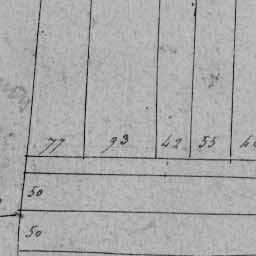 77 93 42 55
50
50